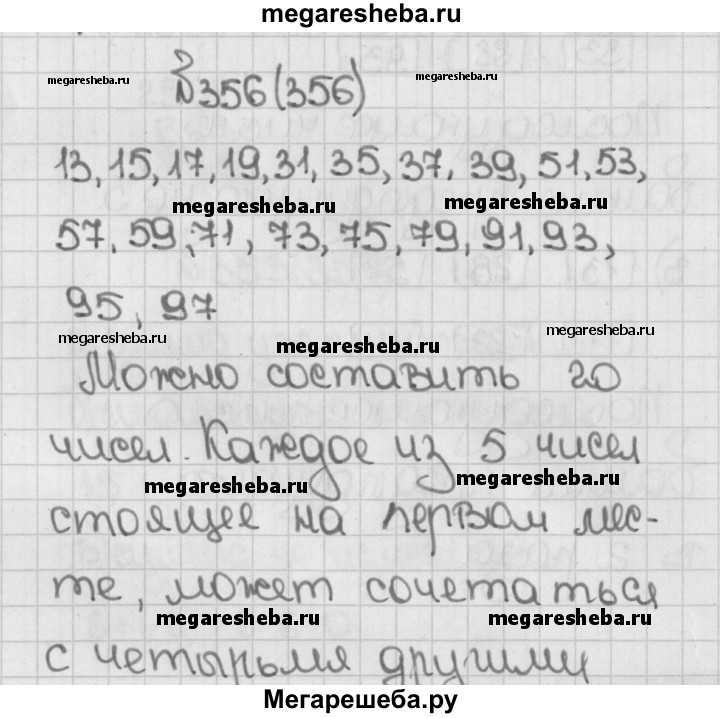 megaresheba.ru
megaresheba.ru
megaresheba.ru
№356(356)
13, 15, 17, 19, 31, 35, 37, 39, 51, 53,
megaresheba.ru
megaresheba.ru
57, 59, 71, 73, 75, 79, 91, 93,
95, 97
megaresheba.ru
megaresheba.ru
megaresheba.ru
Можно составить 20
чисел. Каждое из 5 чисел
megaresheba.ru
megaresheba.ru
стоящее на первом мес-
те, может сочетаться
megaresheba.ru
megaresheba.ru
с четырьмя другими
Мегарешеба.ру